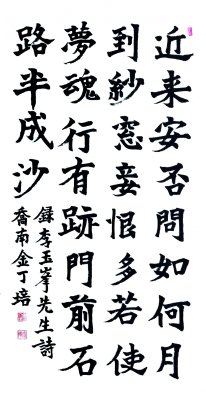 近来安否問如何月
到紗窓妾恨多若使
夢魂行有跡門前石
路半成沙
録李玉峯先生詩
喬南金丁培